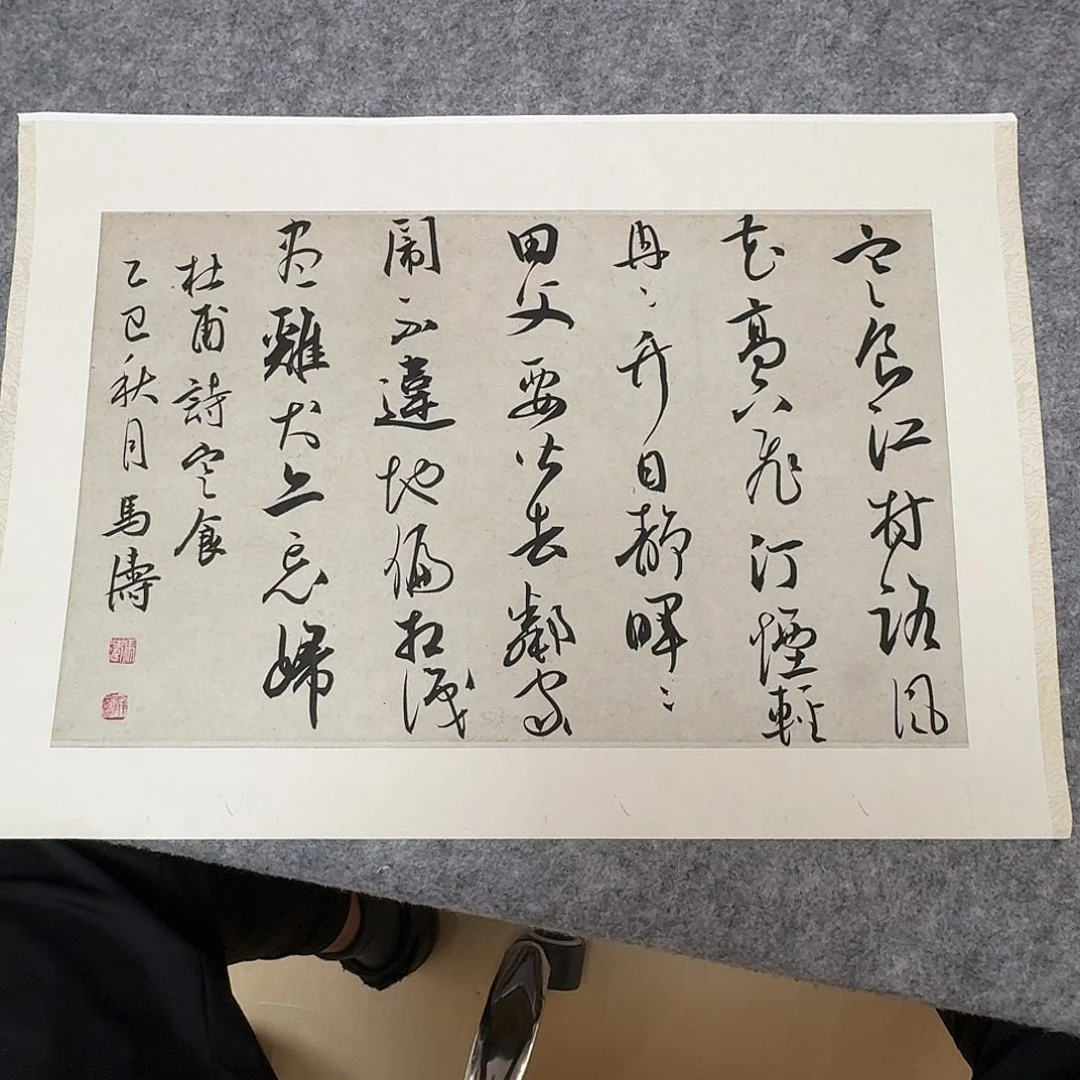 寒食江村路風
花高下飛汀煙輕
冉冉竹日靜暉暉
田父要皆去鄰家
鬧不違地偏相識
盡雞犬亦忘歸
杜甫詩寒食
乙巳秋月馬濤